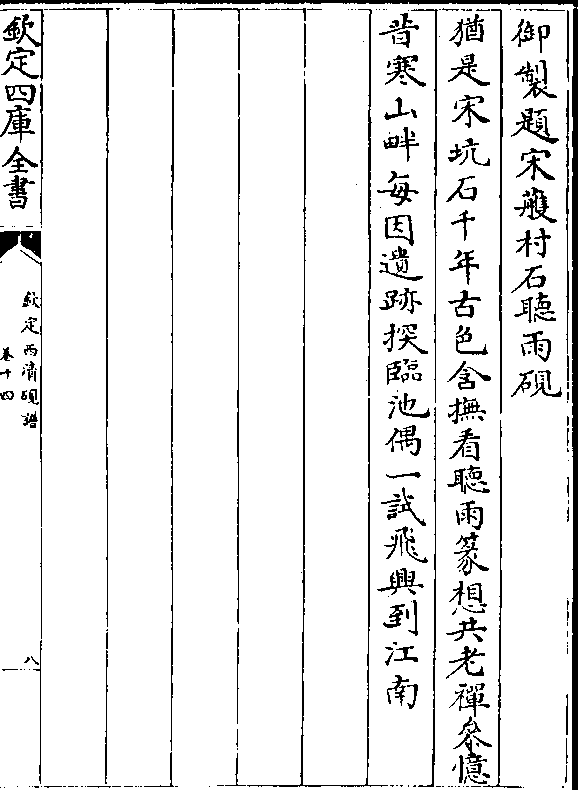 御製題宋蕿村石聽雨硯
猶是宋坑石千年古色含撫看聽雨篆想共老禪叅憶
昔寒山畔每因遺跡探臨池偶一試飛興到江南
欽定四庫全書
欽定西清硯譜
卷十四
八